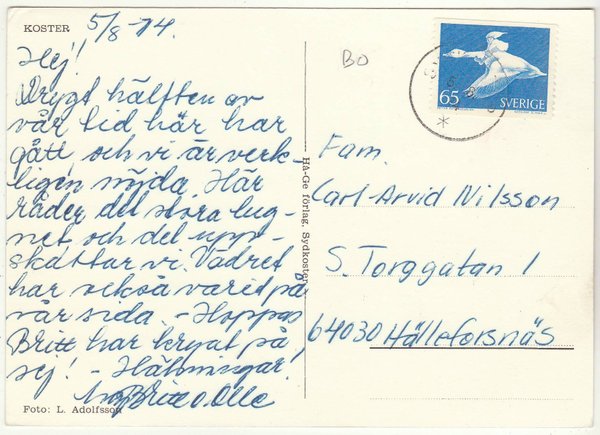 KOSTER
5/8-74.
Hej!
Drygt hälften av
vår tid här har
gått och vi är verk-
ligen nöjda. Här
råder det stora lug-
net och det upp-
skattar vi. Vädret
har också varit på
vår sida. - Hoppas
Britt har kryat på
sej! - Hälsningar!
Britt o. Olle
Foto: L. Adolfsson
Hå-Ge förlag, Sydkoster
BO
65
SVERIGE
Fam.
Carl-Arvid Nilsson
S. Torggatan 1
64030 Hälleforsnäs